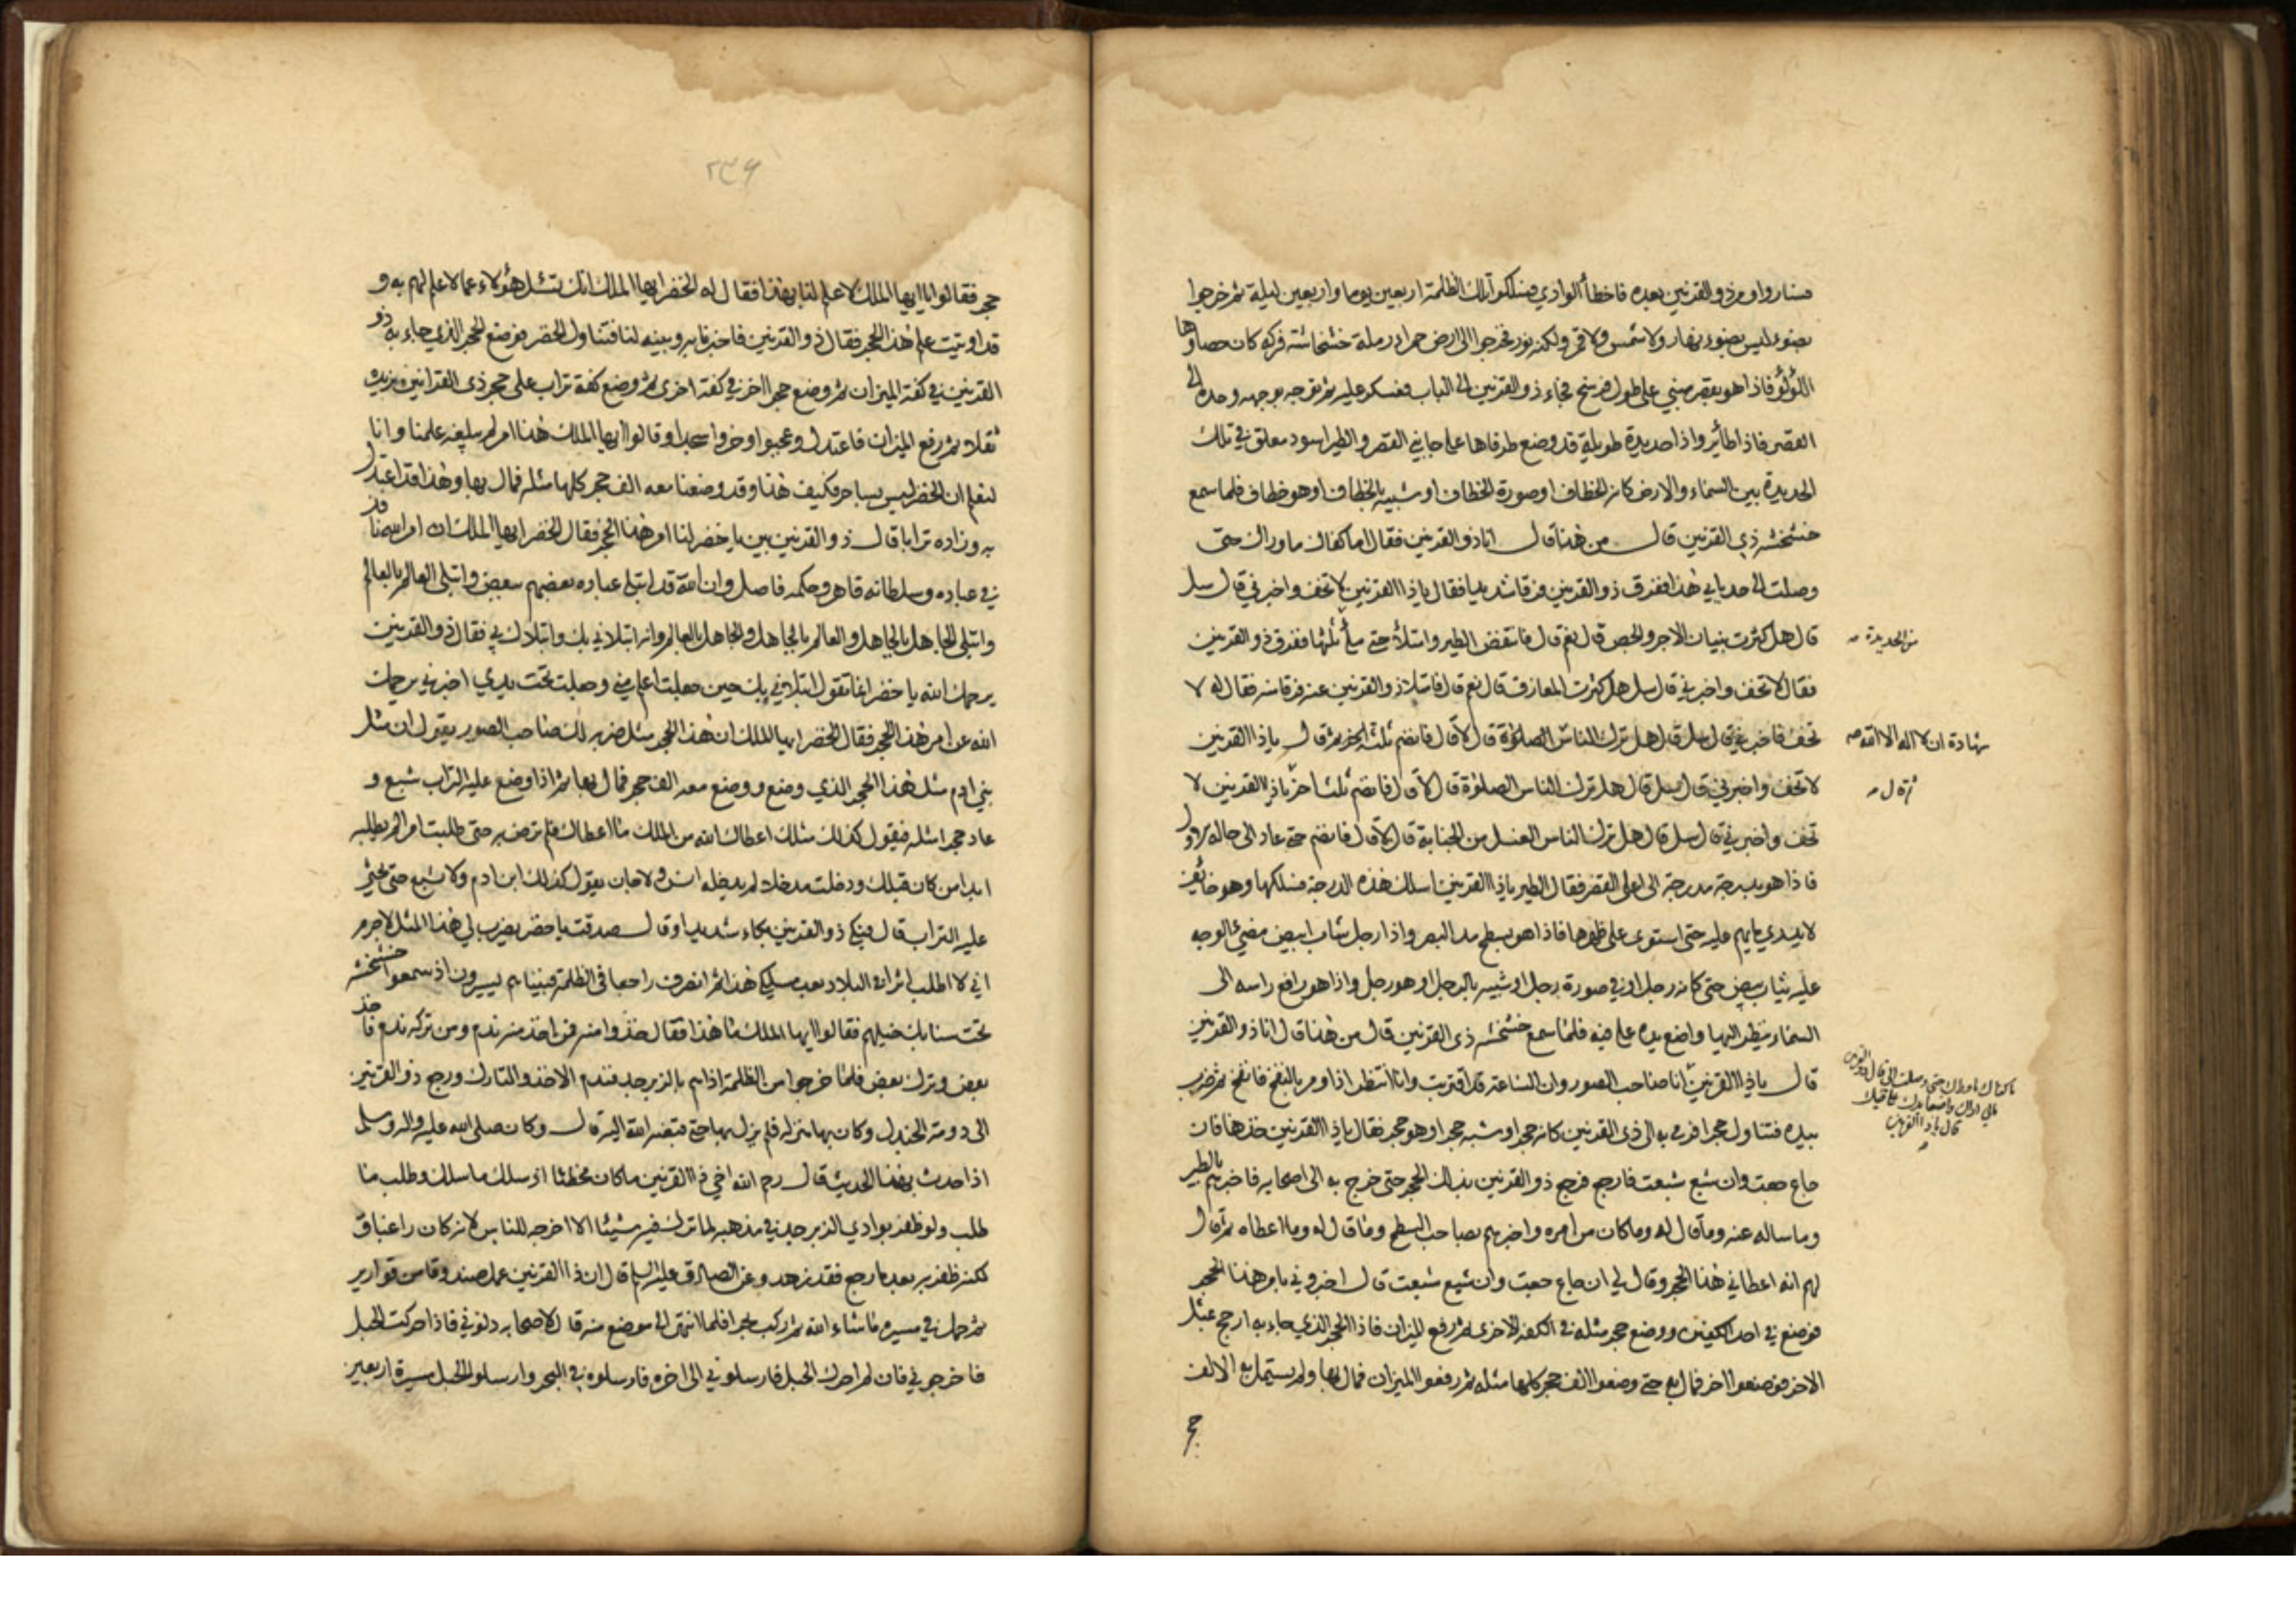 فساروا ومر ذو القرنين بعده فاخطأ الوادي فسلكوا تلك الظلمة اربعين يوما واربعين ليلة ثم خرجوا
بضوء ليس بضوء نهار ولا شمس ولا قمر ولكنه نور فخرجوا الى ارض حمراء رملة خشخاشة فركه كان حصاوها
اللؤلؤ فاذا هو بقصر مبني على طول فرسخ فجاء ذو القرنين الى الباب فعسكر عليه ثم توجه بوجهه وحده الى
القصر فاذا طائر واذا حديدة طويلة قد وضع طرفاها على جانبي القصر والطير اسود معلق في تلك
الحديدة بين السماء والارض كانه الخطاف او صورة الخطاف او شبيه بالخطاف او هو خطاف فلما سمع
خشخشه ذي القرنين قال من هذا قال انا ذو القرنين فقال اما كفاك ما وراك حتى
وصلت الى حد بابي هذا ففرق ذو القرنين فرقا شديدا فقال يا ذا القرنين لا تخف واخبرني قال سل
قال هل كثرت بنيان الاجر والجص قال نعم قال فانتفض الطير وامتلأ حتى ملأ ثلثها ففرق ذو القرنين
من الحديدة
فقال لا تخف واخبرني قال سل هل كثرت المعازف قال نعم قال فامتلا ذو القرنين عنه فرقا منه فقال له لا
تخف فاخبرني قال سل قال هل ترك الناس الصلوة قال لا قال فانضم ثلثه اخر ثم قال يا ذا القرنين
شهادة ان لا اله الا الله
لا تخف واخبرني قال سل قال هل ترك الناس الصلوة قال لا قال فانضم ثلثا اخر يا ذا القرنين لا
ثم قال
تخف واخبرني قال سل قال هل ترك الناس الغسل من الجنابة قال لا قال فانضم حتى عاد الى حاله الاول
فاذا هو بدرجة مدرجة الى اعلى القصر فقال الطير يا ذا القرنين اسلك هذه الدرجة فسلكها وهو خائف
لا يدري ما يهجم عليه حتى استوى على ظهرها فاذا هو بسطح مد البصر واذا رجل شاب ابيض مضيء الوجه
عليه ثياب بيض حتى كانه رجل او في صورة رجل او شبيه بالرجل او هو رجل واذا هو رافع راسه الى
السماء ينظر اليها واضع يده على فيه فلما سمع خشخشه ذي القرنين قال من هذا قال انا ذو القرنين
ما كفاك ما وراك حتى وصلت الى قال ذو القرنين
مالي اراك واضعا يدك على فيك
قال يا ذا القرنين
قال يا ذا القرنين انا صاحب الصور وان الساعة قد اقتربت وانا انتظر اذا اومر بالنفخ فانفخ ثم ضرب
بيده فتناول حجرا فرمى به الى ذي القرنين كانه حجر او شبه حجر او هو حجر فقال يا ذا القرنين خذها فان
جاع جعت وان شبع شبعت فارجع فرجع ذو القرنين بذلك الحجر حتى خرج به الى اصحابه فاخبرهم بالطير
وما ساله عنه وما قال له وما كان من امره واخبرهم بصاحب السطح وما قال له وما اعطاه ثم قال
لهم انه اعطاني هذا الحجر وقال لي ان جاع جعت وان شبع شبعت قال اخبروني بامر هذا الحجر
فوضع في احد الكفتين ووضع حجر مثله في الكفة الاخرى ثم رفع الميزان فاذا الحجر الذي جاء به ارجح بمثل
الاخر فوضعوا اخر فمال به حتى وضعوا الف حجر كلها مثله ثم رفعوا الميزان فمال بها ولم يستمل به الالف
حجر
۲۳۶
حجر فقالوا يا ايها الملك لا علم لنا بهذا فقال له الخضر ايها الملك انك تسئل هؤلاء عما لا علم لهم به و
قد اوتيت علم هذا الحجر فقال ذو القرنين فاخبرنا به وبينه لنا فتناول الخضر فوضع الحجر الذي جاء به ذو
القرنين في كفة الميزان ثم وضع حجرا اخر في كفة اخرى ثم وضع كفة تراب على حجر ذي القرنين يزيده
ثقلا ثم رفع الميزان فاعتدل وعجبوا وخروا سجدا وقالوا ايها الملك هذا امر لم يبلغه علمنا وانا
لنعلم ان الخضر ليس بساحر فكيف هذا وقد وضعنا معه الف حجر كلها مثله فمال بها وهذا قد اعتدل
به وزاده ترابا قال ذو القرنين بين يا خضر لنا امر هذا الحجر فقال الخضر ايها الملك ان امر الله نافذ
في عباده وسلطانه قاهر وحكمه فاصل وان الله قد ابتلى عباده بعضهم ببعض وابتلى العالم بالعالم
وابتلى الجاهل بالجاهل والعالم بالجاهل والجاهل بالعالم وانه ابتلاني بك وابتلاك بي فقال ذو القرنين
يرحمك الله يا خضر انما تقول ابتلاني بك حين جعلت اعلم مني وجعلت تحت يدي اخبرني يرحمك
الله عن امر هذا الحجر فقال الخضر ايها الملك ان هذا الحجر مثل ضربه لك صاحب الصور يقول ان مثل
بني ادم مثل هذا الحجر الذي وضع ووضع معه الف حجر فمال بها ثم اذا وضع عليه التراب شبع و
عاد حجرا مثله فيقول كذلك مثلك اعطاك الله من الملك ما اعطاك فلم ترض به حتى طلبت امرا لم يطلبه
ابدا من كان قبلك ودخلت مدخلا لم يدخله انس ولا جان يقول كذلك ابن ادم ولا يشبع حتى يحثى
عليه التراب قال فبكى ذو القرنين بكاء شديدا وقال صدقت يا خضر يضرب لي هذا المثل لا جرم
اني لا اطلب اثرا في البلاد بعد مسلكي هذا ثم انصرف راجعا في الظلمة فبيناهم يسيرون اذ سمعوا خشخشه
تحت سنابك خيلهم فقالوا ايها الملك ما هذا فقال خذوا منه فمن اخذ منه ندم ومن تركه ندم فاخذ
بعض وترك بعض فلما خرجوا من الظلمة اذا هم بالزبرجد فندم الاخذ والتارك ورجع ذو القرنين
الى دومة الجندل وكان بها منزله فلم يزل بها حتى قبضه الله اليه قال وكان صلى الله عليه واله وسلم
اذا حدث بهذا الحديث قال رحم الله اخي ذا القرنين ما كان مخطئا اذ سلك ما سلك وطلب ما
طلب ولو ظفر بوادي الزبرجد في مذهبه لما ترك فيه شيئا الا اخرجه للناس لانه كان راغبا
لكنه ظفر به بعد ما رجع فقد زهد وعن الصادق عليه السلام قال ان ذا القرنين عمل صندوقا من قوارير
ثم حمل في مسيره ما شاء الله ثم ركب البحر فلما انتهى الى موضع منه قال لاصحابه دلوني فاذا حركت الحبل
فاخرجوني فان لم احرك الحبل فارسلوني الى اخره فارسلوه في البحر وارسلوا الحبل مسيرة اربعين